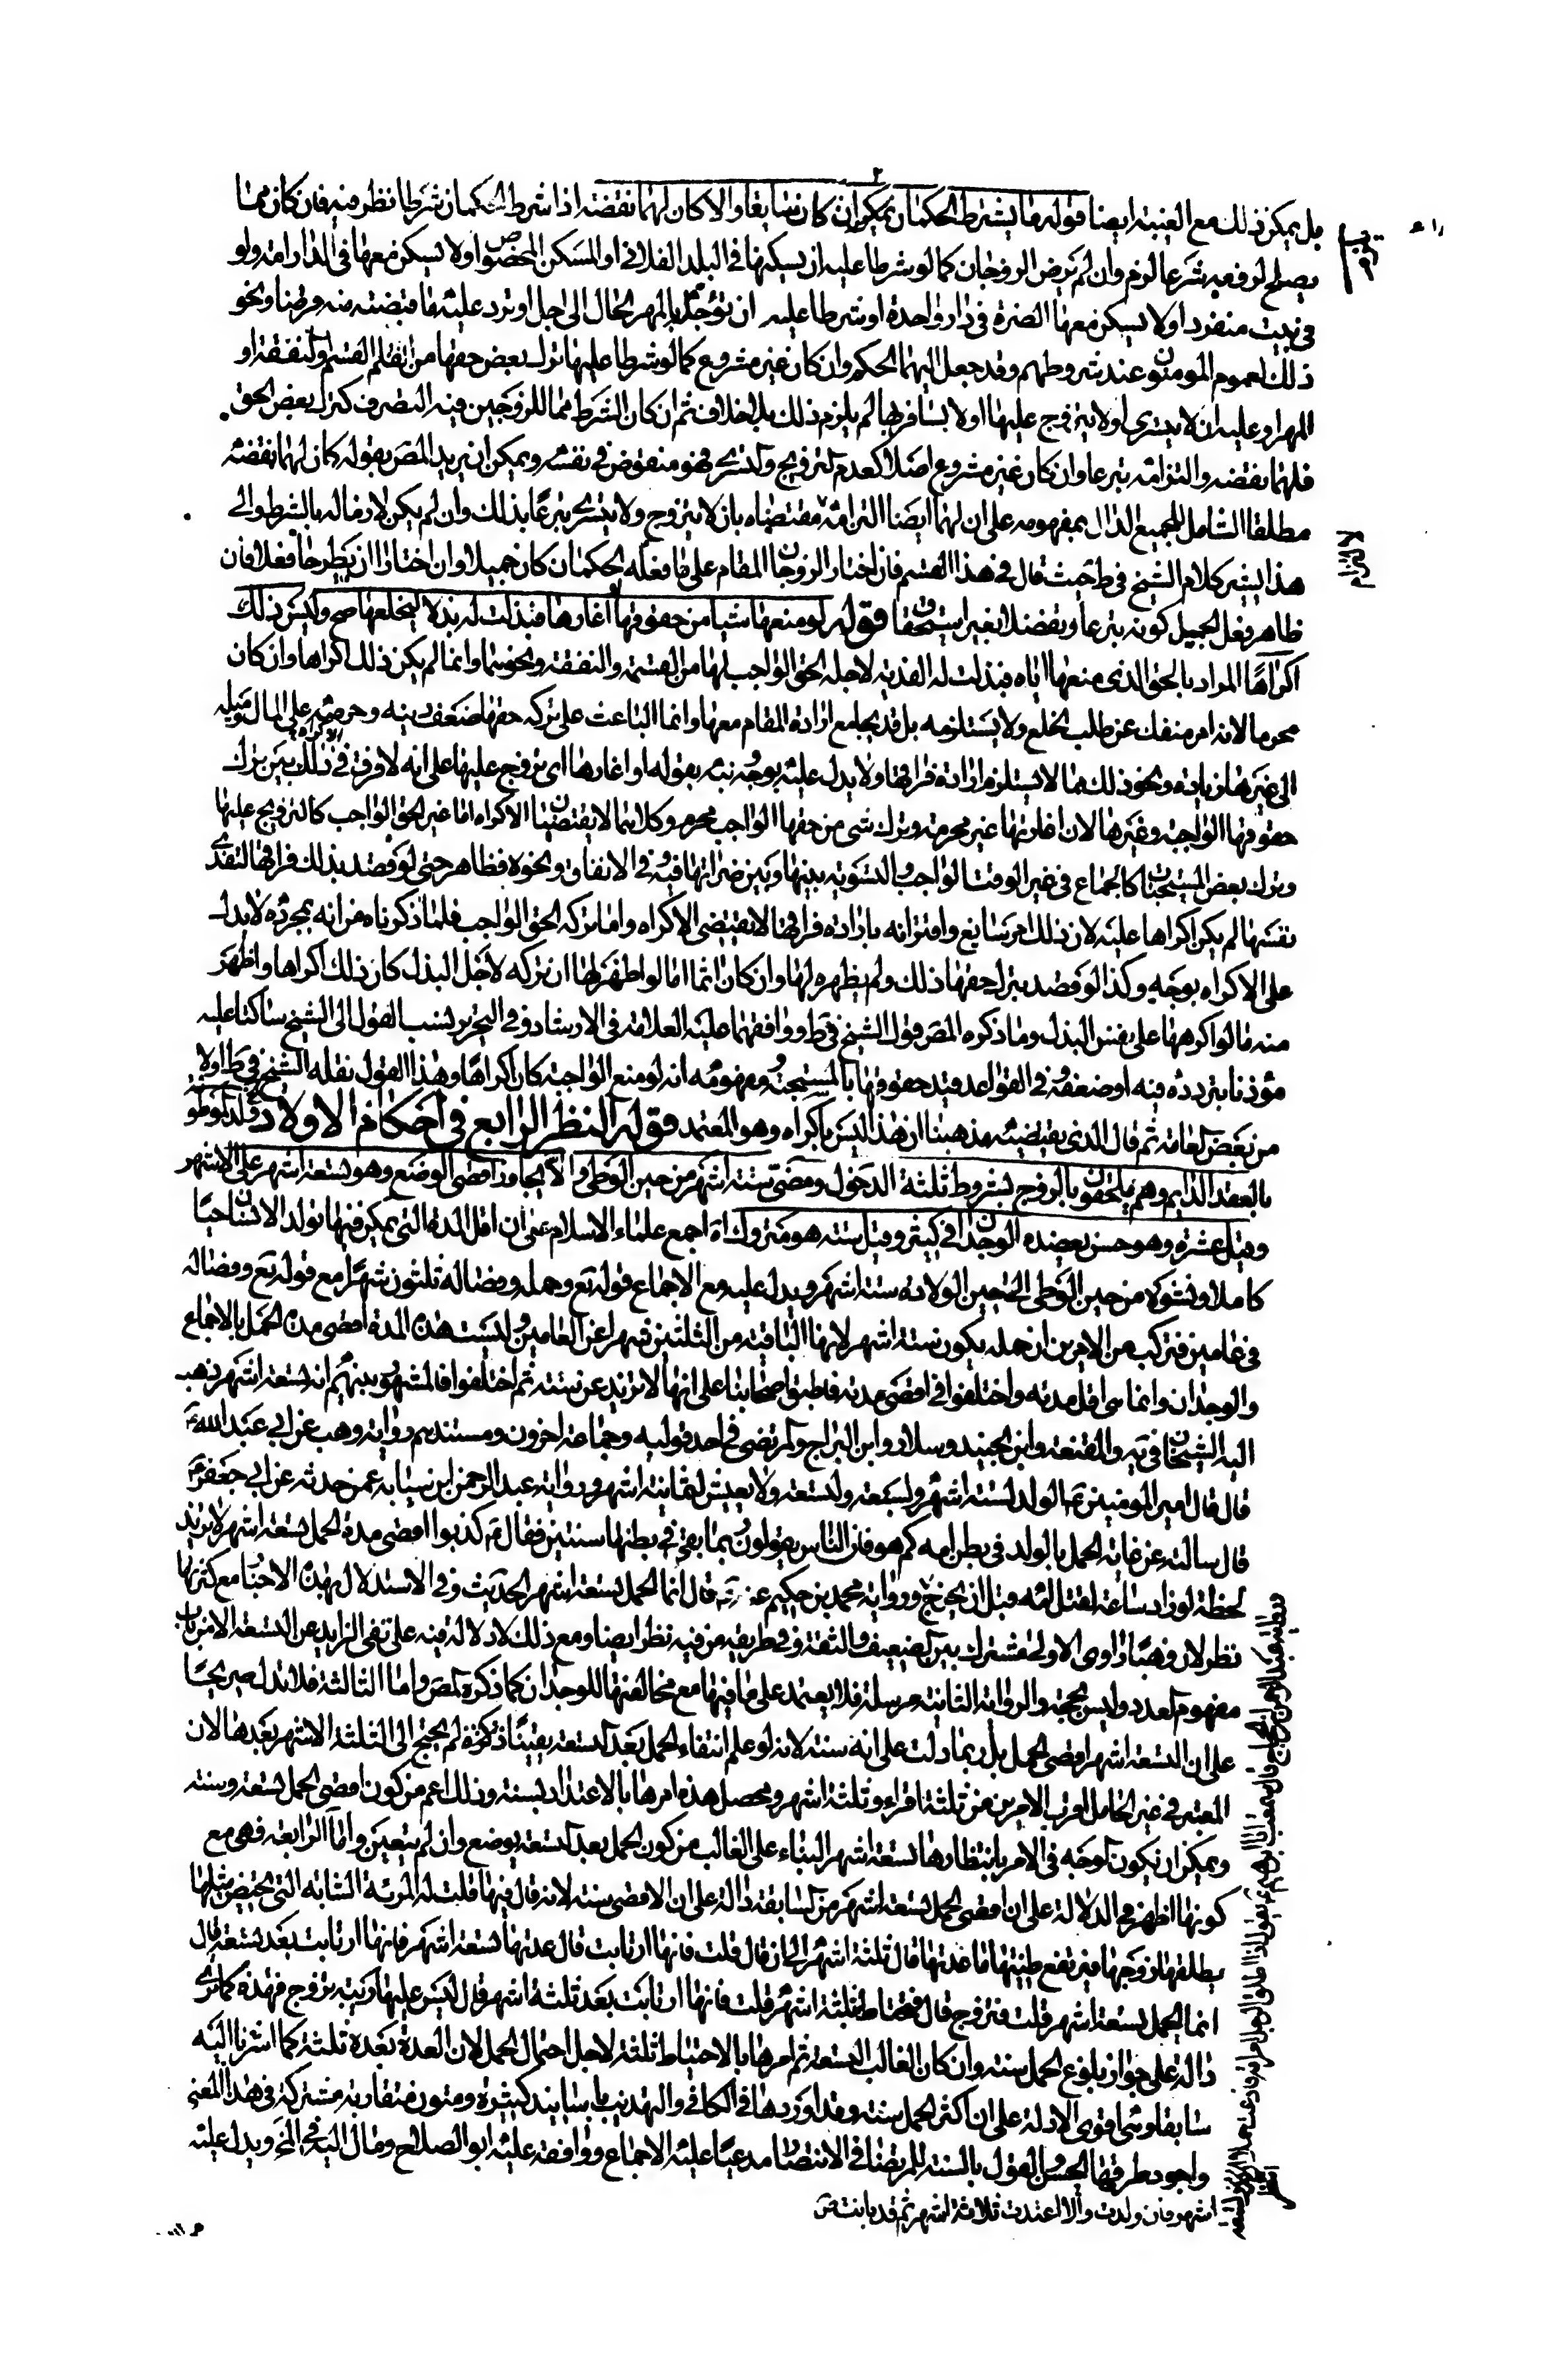 بل يمكن ذلك مع الغيبة ايضا قوله ما يشترط الحكمان يمكن ان كان سايغا والا كان لهما نقضه اذا شرط الحكمان شرطا نظر فيه فان كان مما
يصلح لوقوعه شرعا لزم وان لم يرض الزوجان كما لو شرطا عليه ان يسكنها في البلد الفلاني او المسكن المخصوص او لا يسكن معها في الدار امه ولو
في بيت منفرد او لا يسكن معها الضرة في دار واحدة او شرطا عليها ان تؤجله بالمهر الحال الى اجل او ترد عليه ما قبضته منه قرضا ونحو
ذلك لعموم المومنون عند شروطهم وقد جعل اليهما الحكم وان كان غير مشروع كما لو شرطا عليها ترك بعض حقها من القسم والنفقة او
المهر او عليه ان لا يتسرى او لا يتزوج عليها او لا يسافر بها لم يلزم ذلك بلا خلاف ثم ان كان الشرط مما للزوجين فيه التصرف كترك بعض الحق
فلهما نقضه والتزامه تبرعا وان كان غير مشروع اصلا كعدم التزويج والتسري فهو منقوض في نفسه ويمكن ان يريد المص بقوله كان لهما نقضه
مطلقا الشامل للجميع الدال بمفهومه على ان لهما ايضا التزام مقتضاه بان لا يتزوج ولا يتسرى تبرعا بذلك وان لم يكن لازما له بالشرط والى
هذا يشير كلام الشيخ في ط حيث قال في هذا القسم فان اختار الزوجان المقام على ما فعله الحكمان كان جميلا وان اختارا ان يطرحا فعلا فان
ظاهر فعل الجميل كونه تبرعا وتفضلا بغير استحقاق قوله لو منعها شيئا من حقوقها او اغارها فبذلت له بذلا ليخلعها صح وليس ذلك
اكراها المراد بالحق الذي منعها اياه فبذلت له الفدية لاجله الحق الواجب لها من القسمة والنفقة ونحوهما وانما لم يكن ذلك اكراها وان كان
محرما لانه امر منفك عن طلب الخلع ولا يستلزمه بل قد يجامع ارادة المقام معها وانما الباعث على تركه حقها ضعف دينه وحرصه على المال وميله
الى غيرها زيادة ونحو ذلك مما لا يستلزم ارادة فراقها ولا يدل عليه بوجه نبه بقوله او اغارها اي تزوج عليها على انه لا فرق في ذلك بين ترك
حقوقها الواجبة وغيرها لان اغارتها غير محرمة وترك شي من حقها الواجب محرم وكلاهما لا يقتضيان الاكراه اما غير الحق الواجب كالتزويج عليها
وترك بعض المستحبات كالجماع في غير الوقت الواجب والتسوية بينها وبين ضراتها فيه وفي الانفاق ونحوه فظاهر حتى لو قصد بذلك فراقها لتفدى
نفسها لم يكن اكراها عليه لان ذلك امر سايغ واقترانه بارادة فراقها لا يقتضي الاكراه واما تركه الحق الواجب فلما ذكرناه من انه بمجرده لا يدل
على الاكراه بوجه وكذا لو قصد بترك حقها ذلك ولم يظهره لها وان كان اثما اما لو اظهر لها ان تركه لاجل البذل كان ذلك اكراها واظهر
منه ما لو اكرهها على نفس البذل وما ذكره المص قول الشيخ في ط ووافقهما عليه العلامة في الارشاد وفي التحرير نسب القول الى الشيخ ساكتا عليه
مؤذنا بتردده فيه او ضعفه وفي القواعد قيد حقوقها بالمستحبة ومفهومه انه لو منع الواجبة كان اكراها وهذا القول نقله الشيخ في ط اولا
من بعض العامة ثم قال الذي يقتضيه مذهبنا ان هذا ليس باكراه وهو المعتمد قوله النظر الرابع في احكام الاولاد ولد الموطوءة
بالعقد الدايم وهم يلحقون بالزوج بشروط ثلثة الدخول ومضي ستة اشهر من حين الوطي والا يجاوز اقصى الوضع وهو تسعة اشهر على الاشهر
وقيل عشرة وهو حسن يعضده الوجدان في كثير وقيل سنة هو متروك اه اجمع علماء الاسلام على ان اقل المدة التي يمكن فيها تولد الانسان حيا
كاملا ونشوه من حين الوطي الى حين الولادة ستة اشهر ويدل عليه مع الاجماع قوله تع وحمله وفصاله ثلثون شهرا مع قوله تع وفصاله
في عامين فتركب من الامرين ان حمله يكون ستة اشهر لانها الباقية من الثلثين شهرا عن العامين وليست هذه المدة اقصى مدة الحمل بالاجماع
والوجدان وانما هي اقل مدته واختلفوا في اقصى مدته فاطبق اصحابنا على انها لا تزيد عن سنة ثم اختلفوا فالمشهور بينهم انه تسعة اشهر ذهب
اليه الشيخان في يه والمقنعة وابن الجنيد وسلار وابن البراج والمرتضى في احد قوليه وجماعة اخرون ومستندهم رواية وهب عن ابي عبد الله ع
قال قال امير المومنين ع الولد لستة اشهر ولسبعة ولتسعة ولا يعيش لثمانية اشهر ورواية عبد الرحمن بن سيابه عمن حدثه عن ابي جعفر ع
قال سالته عن غاية الحمل بالولد في بطن امه كم هو فان الناس يقولون ربما بقى في بطنها سنتين فقال ع كذبوا اقصى مدة الحمل تسعة اشهر لا يزيد
لحظة لو زاد ساعة لقتل امه قبل ان يخرج ورواية محمد بن حكيم عنه ع قال انما الحمل تسعة اشهر الحديث وفي الاستدلال بهذه الاخبار مع كثرتها
نظر لان وهبا راوي الاولى مشترك بين الضعيف والثقة وفي طريقه من فيه نظر ايضا ومع ذلك لا دلالة فيه على نفي الزايد عن التسعة الا من باب
مفهوم العدد وليس بحجة والرواية الثانية مرسلة فلا يعتمد على ما فيها مع مخالفتها للوجدان كما ذكره المص واما الثالثة فلا تدل صريحا
على ان التسعة اشهر اقصى الحمل بل ربما دلت على انه سنة لانه لو علم انتفاء الحمل بعد التسعة يقينا ذكره لم يحتج الى الثلثة الاشهر بعدها لان
المعتبر في غير الحامل اقرب الامرين من ثلثة اقراء وثلثة اشهر ومحصل هذه امرها بالاعتداد بسنة وذلك اعم من كون اقصى الحمل تسعة وسنة
ويمكن ان يكون الوجه في الامر بانتظارها تسعة اشهر البناء على الغالب من كون الحمل بعد التسعة يوضع وان لم يتعين واما الرابعة فهي مع
كونها اظهر في الدلالة على ان اقصى الحمل تسعة اشهر من السابقة دالة على ان الاقصى سنة لانه قال فيها قلت له المرئة الشابة التي تحيض مثلها
يطلقها زوجها فيرتفع طمثها ما عدتها قال ثلثة اشهر الى ان قال قلت فانها ارتابت قال عدتها تسعة اشهر قلت فانها ارتابت بعد تسعة قال
انما الحمل تسعة اشهر قلت فتزوج قال تحتاط بثلثة اشهر قلت فانها ارتابت بعد ثلثة اشهر قال ليس عليها ريبة تزوج فهذه كما ترى
دالة على جواز بلوغ الحمل سنة وان كان الغالب التسعة ثم امرها بالاحتياط ثلثة لاجل احتمال الحمل لان العدة بعده ثلثة كما اشرنا اليه
سابقا وهي اقوى الادلة على ان اكثر الحمل سنة وقد اوردها في الكافي والتهذيب باسانيد كثيرة ومتون متقاربة مشتركة في هذا المعنى
واجود طرقها الحسن والقول بالسنة للمرتضى في الانتصار مدعيا عليه الاجماع ووافقه عليه ابو الصلاح ومال اليه في المخ ويدل عليه
ورواية عبد الرحمن بن الحجاج قال سمعت ابا ابراهيم ع يقول اذا طلق الرجل امراته فادعت حملا انتظر تسعة
اشهر فان ولدت والا اعتدت ثلاثة اشهر ثم قد بانت منه